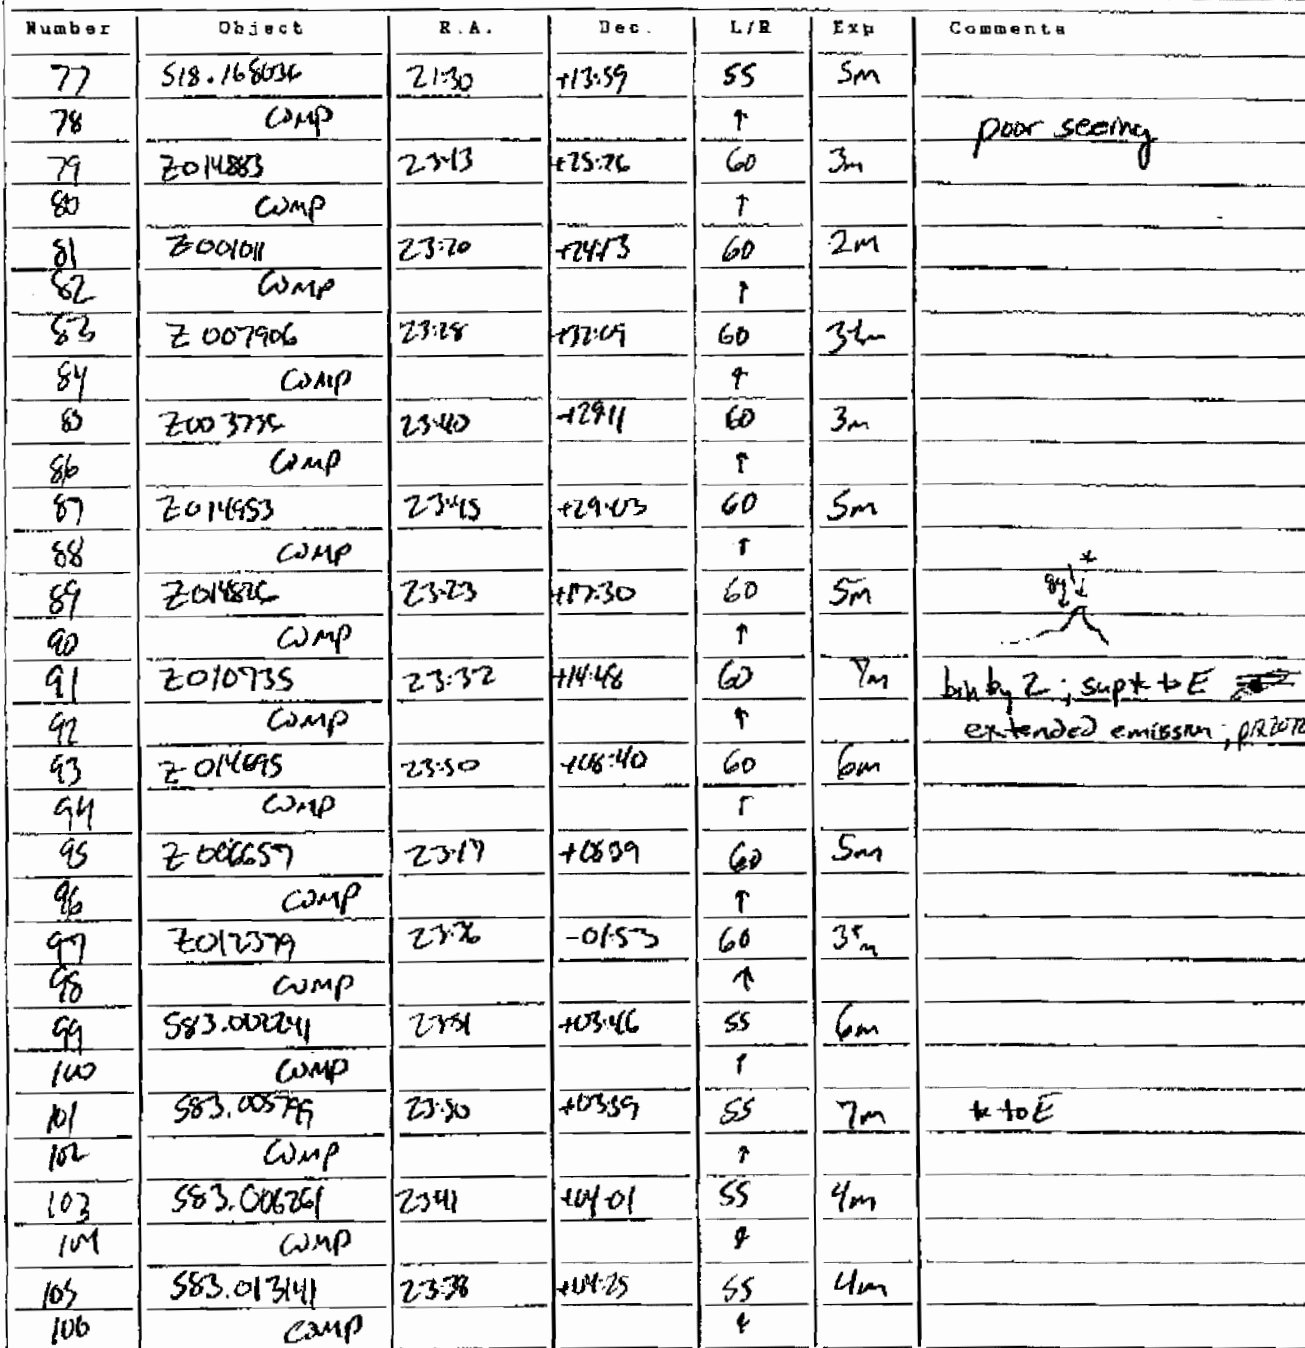 Number Object R.A. Dec. L/R Exp Comments
77 S18.168036 21:30 +13:59 55 5m
78 COMP ↑ poor seeing
79 Z014883 23:13 +25:26 60 3m
80 COMP ↑
81 Z001011 23:20 +24:13 60 2m
82 COMP ↑
83 Z007906 23:28 +32:09 60
84 COMP ↑
85 23:40 +29:11 60 3m
86 COMP ↑
87 Z014953 23:45 +29:03 60 5m
88 COMP ↑
89 23:23 +17:30 60 5m 89 *
90 COMP ↑
91 Z010735 23:32 +14:48 60 7m bin by 2; sup * to E
92 COMP ↑ extended emission;
93 Z014695 23:50 +08:40 60 6m
94 COMP ↑
95 Z006657 23:17 +08:39 60 5m
96 COMP ↑
97 Z012379 23:36 -01:53 60
98 COMP ↑
99 S83.002241 23:51 +03:46 55 6m
100 COMP ↑
101 S83.005799 23:50 +03:59 55 7m * to E
102 COMP ↑
103 S83.006261 23:41 +04:01 55 4m
104 COMP ↑
105 S83.013141 23:38 +04:25 55 4m
106 COMP ↑